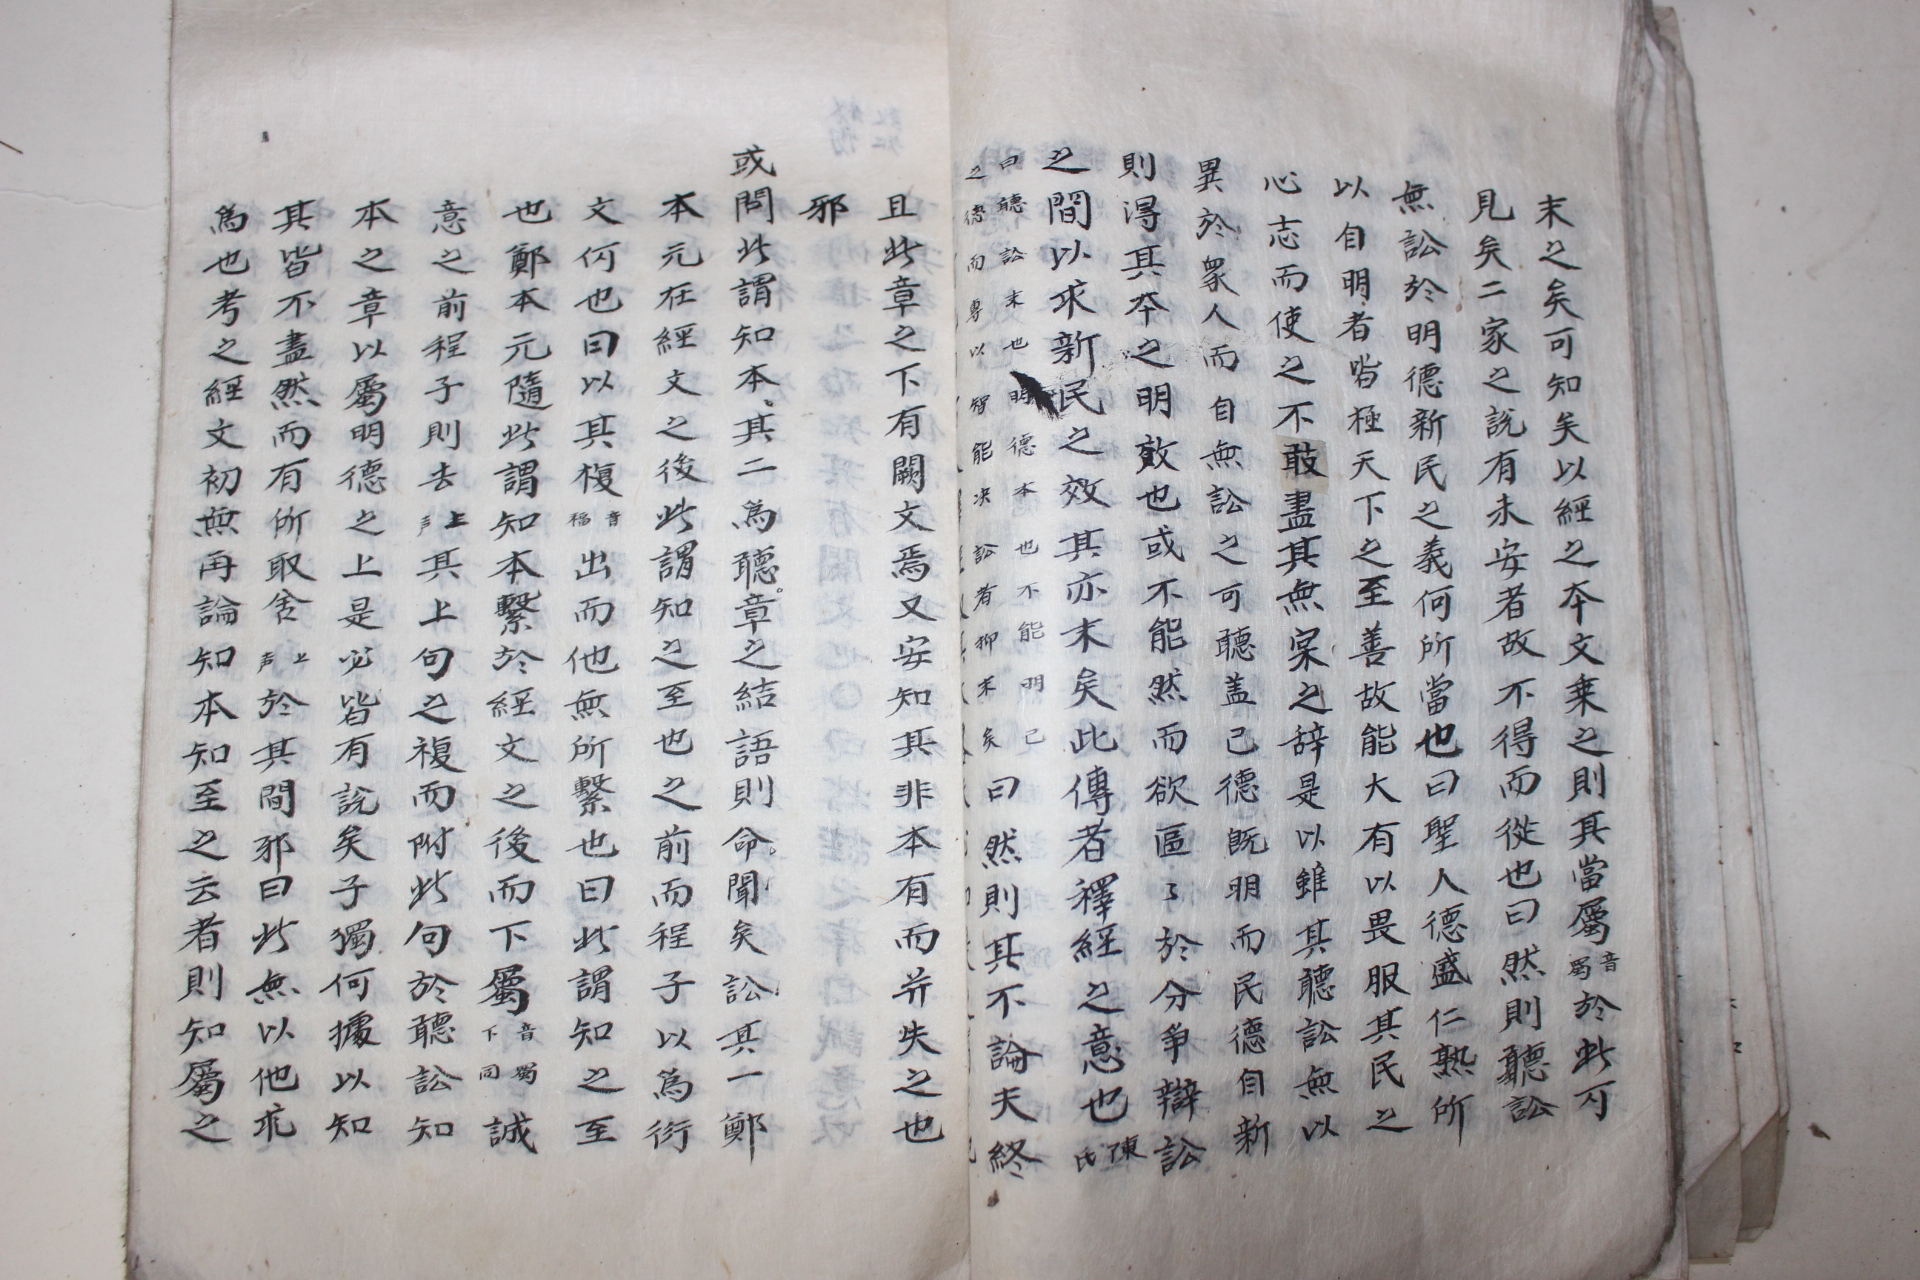 末之矣可知矣以經之本文乘之則其當屬音獨於此可
見矣二家之說有未安者故不得而從也曰然則聽訟
無訟於明德新民之義何所當也曰聖人德盛仁熟所
以自明者皆極天下之至善故能大有以畏服其民之
心志而使之不敢盡其無實之辞是以雖其聽訟無以
異於衆人而自無訟之可聽盖己德既明而民德自新
則得其本之明效也或不能然而欲區々於分爭辯訟
之間以求新民之效其亦末矣此傳者釋經之意也陳氏
曰聽訟末也明德本也不能明己
之德而專以智能决訟者抑末矣曰然則其不論夫終
且此章之下有闕文焉又安知其非本有而并失之也
邪
或問此謂知本其二爲聽章之結語則命聞矣訟其一鄭
本元在經文之後此謂知之至也之前而程子以爲衍
文何也曰以其複音福出而他無所繫也曰此謂知之至
也鄭本元隨此謂知本繫於經文之後而下屬音獨下同誠
意之前程子則去上声其上句之複而附此句於聽訟知
本之章以屬明德之上是必皆有說矣子獨何據以知
其皆不盡然而有所取舍上声於其間邪曰此無以他求
爲也考之經文初無再論知本知至之云者則知屬之